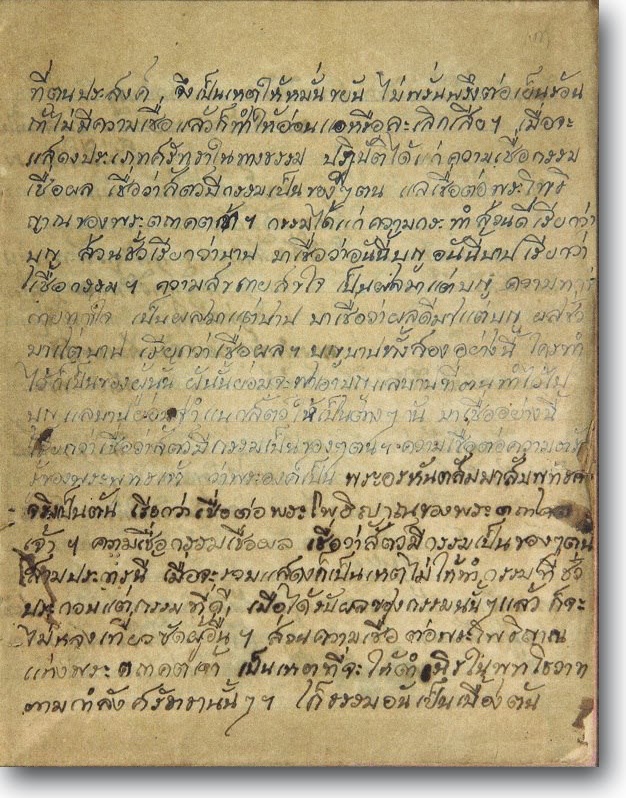 ที่ตนประสงค์, จึงเปนเหตุให้หมั่นขยัน ไม่พรั่นพรึงต่อเย็นร้อน
ถ้าไม่มีความเชื่อแล้วก็ทำให้อ่อนแอหรือละเลิกเสียฯ เมื่อจะ
แสดงประเภทศรัทธาในทางธรรม ปฏิบัติได้แก่ความเชื่อกรรม
เชื่อผล เชื่อว่าสัตวมีกรรมเปนของๆตน แลเชื่อต่อพระโพธิ
ญาณของพระตถาคตเจ้าฯ กรรมได้แก่ความกระทำ ส่วนดีเรียกว่า
บุญ ส่วนชั่วเรียกว่าบาป มาเชื่อว่าอันนี้บุญ อันนี้บาป เรียกว่า
เชื่อกรรมฯ ความสุขกายสุขใจ เปนผลมาแต่บุญ ความทุกข์
กายทุกข์ใจ เปนผลมาแต่บาป มาเชื่อว่าผลดีมาแต่บุญ ผลชั่ว
มาแต่บาป เรียกว่าเชื่อผลฯ บุญบาปทั้งสองอย่างนี้ ใครทำ
ไว้ก็เปนของผู้นั้น ผู้นั้นย่อมจะพาเอาบุญแลบาปที่ตนทำไว้ไป
บุญแลบาปย่อมจำแนกสัตว์ให้เปนต่างๆกัน มาเชื่ออย่างนี้
เรียกว่าเชื่อว่าสัตว์มีกรรมเปนของๆตนฯ ความเชื่อต่อความตรัส
รู้ของพระพุทธเจ้า ว่าพระองค์เปน พระอรหันตสัมมาสัมพุทธเจ้า
จริงเปนต้น เรียกว่าเชื่อต่อพระโพธิญาณของพระตถาคต
เจ้าฯ ความเชื่อกรรมเชื่อผล เชื่อว่าสัตวมีกรรมเปนของๆตน
สามประการนี้ เมื่อจะรวมแสดงก็เปนเหตุไม่ให้ทำกรรมที่ชั่ว
ประกอบแต่กรรมที่ดี, เมื่อได้รับผลของกรรมนั้นๆแล้ว ก็จะ
ไม่หลงเที่ยวซัดผู้อื่นฯ ส่วนความเชื่อต่อพระโพธิญาณ
แห่งพระตถาคตเจ้า เปนเหตุที่จะให้ดำเนิรในพุทโธวาท
ตามกำลังศรัทธานั้นๆฯ ก็ธรรมอันเปนเบื้องต้น